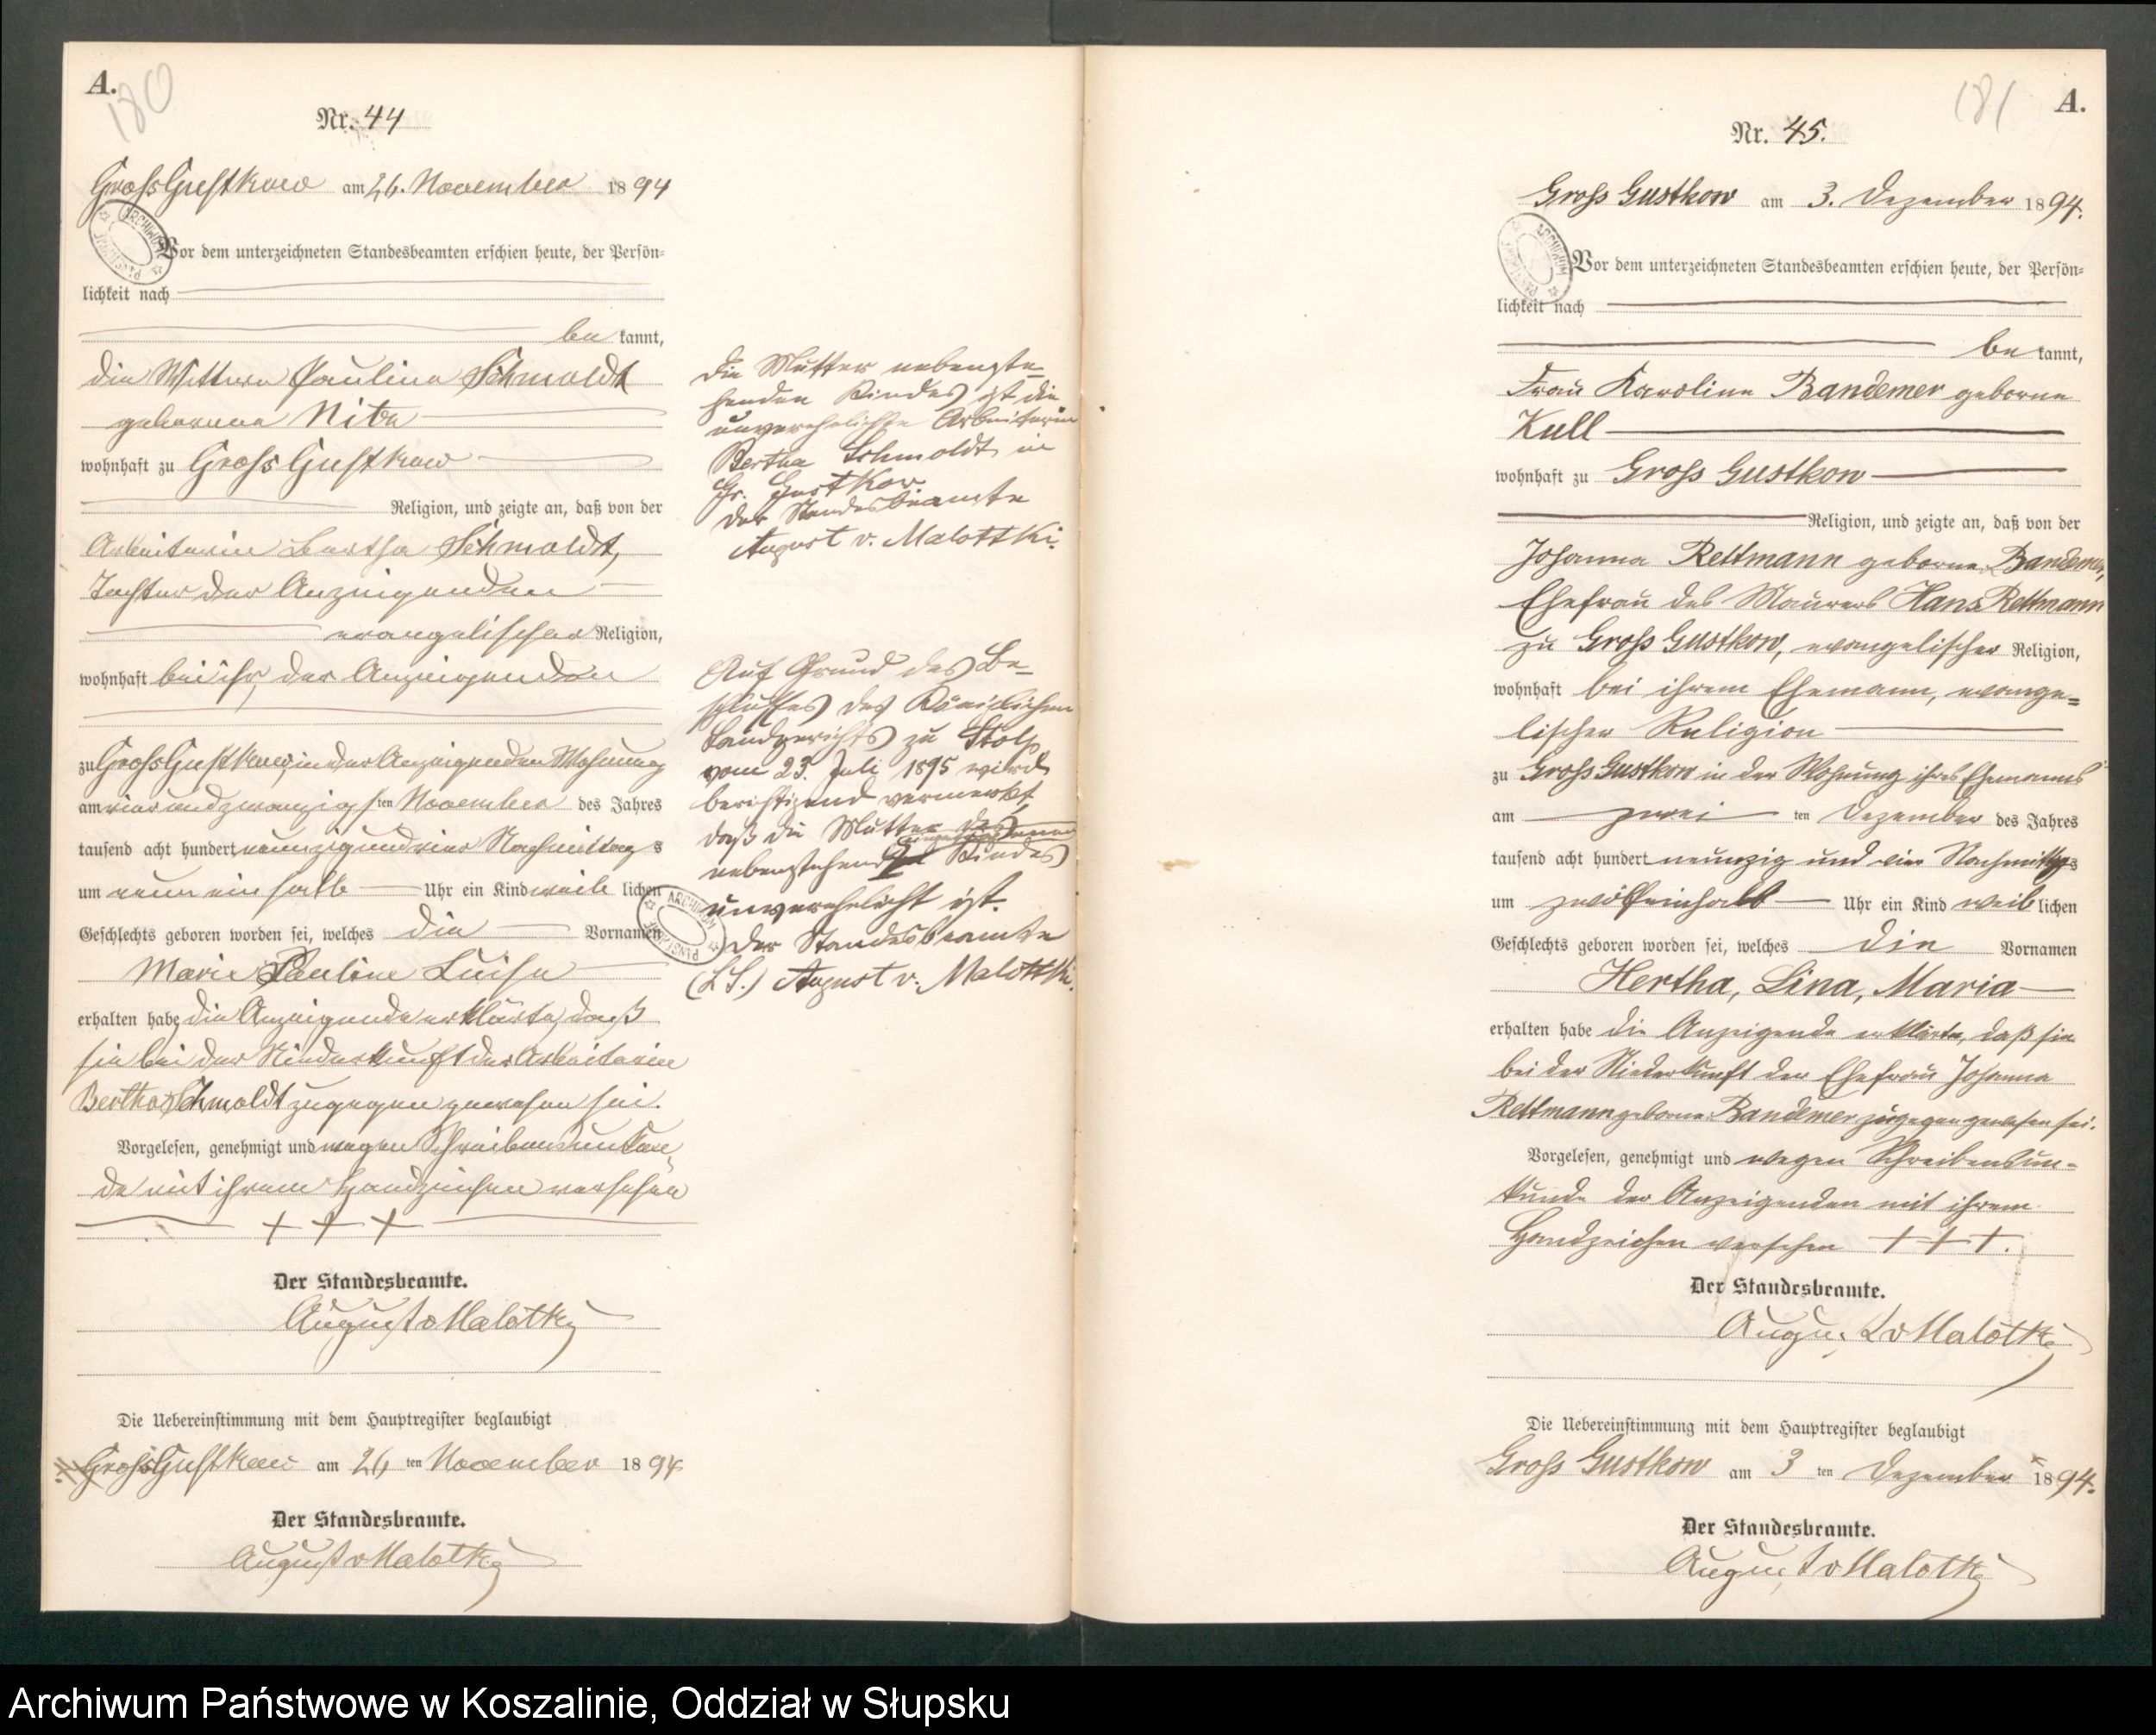 A.
180
Nr. 44
Gross Gustkow am 26. November 1894
Vor dem unterzeichneten Standesbeamten erschien heute, der Persön-
lichkeit nach
be kannt,
die Wittwe Pauline Schmoldt
geborene Nitz
wohnhaft zu Gross Gustkow
Religion, und zeigte an, daß von der
Arbeiterin Bertha Schmoldt,
Tochter der Anzeigenden
evangelischer Religion,
wohnhaft bei ihr, der Anzeigenden
zu Gross Gustkow, in der Anzeigenden Wohnung
am vierundzwanzigsten November des Jahres
tausend acht hundert neunzig und vier Nachmittags
um neun ein halb Uhr ein Kind weib lichen
Geschlechts geboren worden sei, welches die Vornamen
Marie Pauline Luise
erhalten habe, die Anzeigende erklärte, daß
sie bei der Niederkunft der Arbeiterin
Bertha Schmoldt zugegen gewesen sei.
Vorgelesen, genehmigt und wegen Schreibensunkun-
de mit ihrem Handzeichen versehen
+ + +
Der Standesbeamte.
August v Malotky
Die Uebereinstimmung mit dem Hauptregister beglaubigt
Gross Gustkow am 26 ten November 1894
Der Standesbeamte.
August v Malotky
Die Mutter nebenste-
henden Kindes ist die
unverehelichte Arbeiterin
Bertha Schmoldt in
Gr. Gustkow
Der Standesbeamte
August v. Malottki.
Auf Grund des Be-
schlusses des Königlichen
Landgerichts zu Stolp
vom 23. Juli 1895 wird
berichtigend vermerkt,
daß die Mutter des
nebenstehend Kindes
unverehelicht ist.
Der Standesbeamte
(L.S.) August v. Malottki.
ARCHIWUM PAŃSTWOWE
181
A.
Nr. 45.
Gross Gustkow am 3. Dezember 1894.
Vor dem unterzeichneten Standesbeamten erschien heute, der Persön-
lichkeit nach
be kannt,
Frau Karoline Bandemer geborne
Kull
wohnhaft zu Gross Gustkow
Religion, und zeigte an, daß von der
Johanna Rettmann geborne Bandemer,
Ehefrau des Maurers Hans Rettmann
zu Gross Gustkow, evangelischer Religion,
wohnhaft bei ihrem Ehemann, evange=
lischer Religion
zu Gross Gustkow in der Wohnung ihres Ehemanns
am zwei ten Dezember des Jahres
tausend acht hundert neunzig und vier Nachmittags
um zwölfeinhalb Uhr ein Kind weib lichen
Geschlechts geboren worden sei, welches die Vornamen
Hertha, Lina, Maria
erhalten habe die Anzeigende erklärte, daß sie
bei der Niederkunft der Ehefrau Johanna
Rettmann geborne Bandemer zugegen gewesen sei.
Vorgelesen, genehmigt und wegen Schreibensun=
kunde der Anzeigenden mit ihrem
Handzeichen versehen + + +.
Der Standesbeamte.
August v Malotky
Die Uebereinstimmung mit dem Hauptregister beglaubigt
Gross Gustkow am 3 ten Dezember 1894.
Der Standesbeamte.
August v Malotky
Archiwum Państwowe w Koszalinie, Oddział w Słupsku